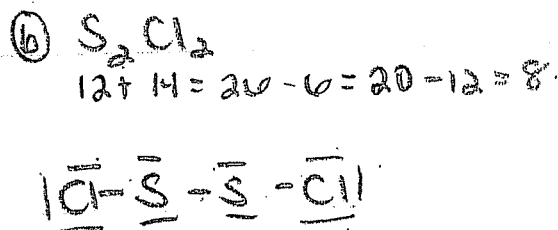 (b) S₂Cl₂
12 + 14 = 26 - 6 = 20 - 12 = 8.
|Cl - S - S - Cl|